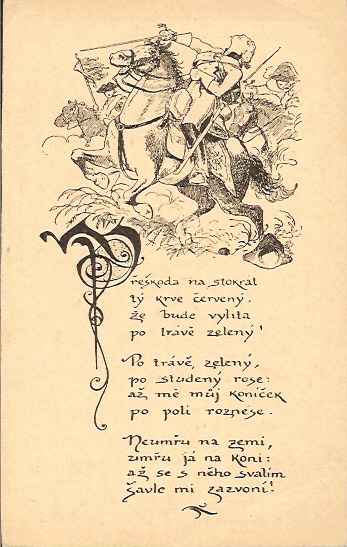 Přeškoda na stokrat
tý krve červený.
že bude vylita
po trávě zelený!
Po trávě, zelený,
po studený rose:
až mě můj koníček
po poli roznese.
Neumřu na zemi,
umřu já na koni:
až se s něho svalím
šavle mi zazvoní!